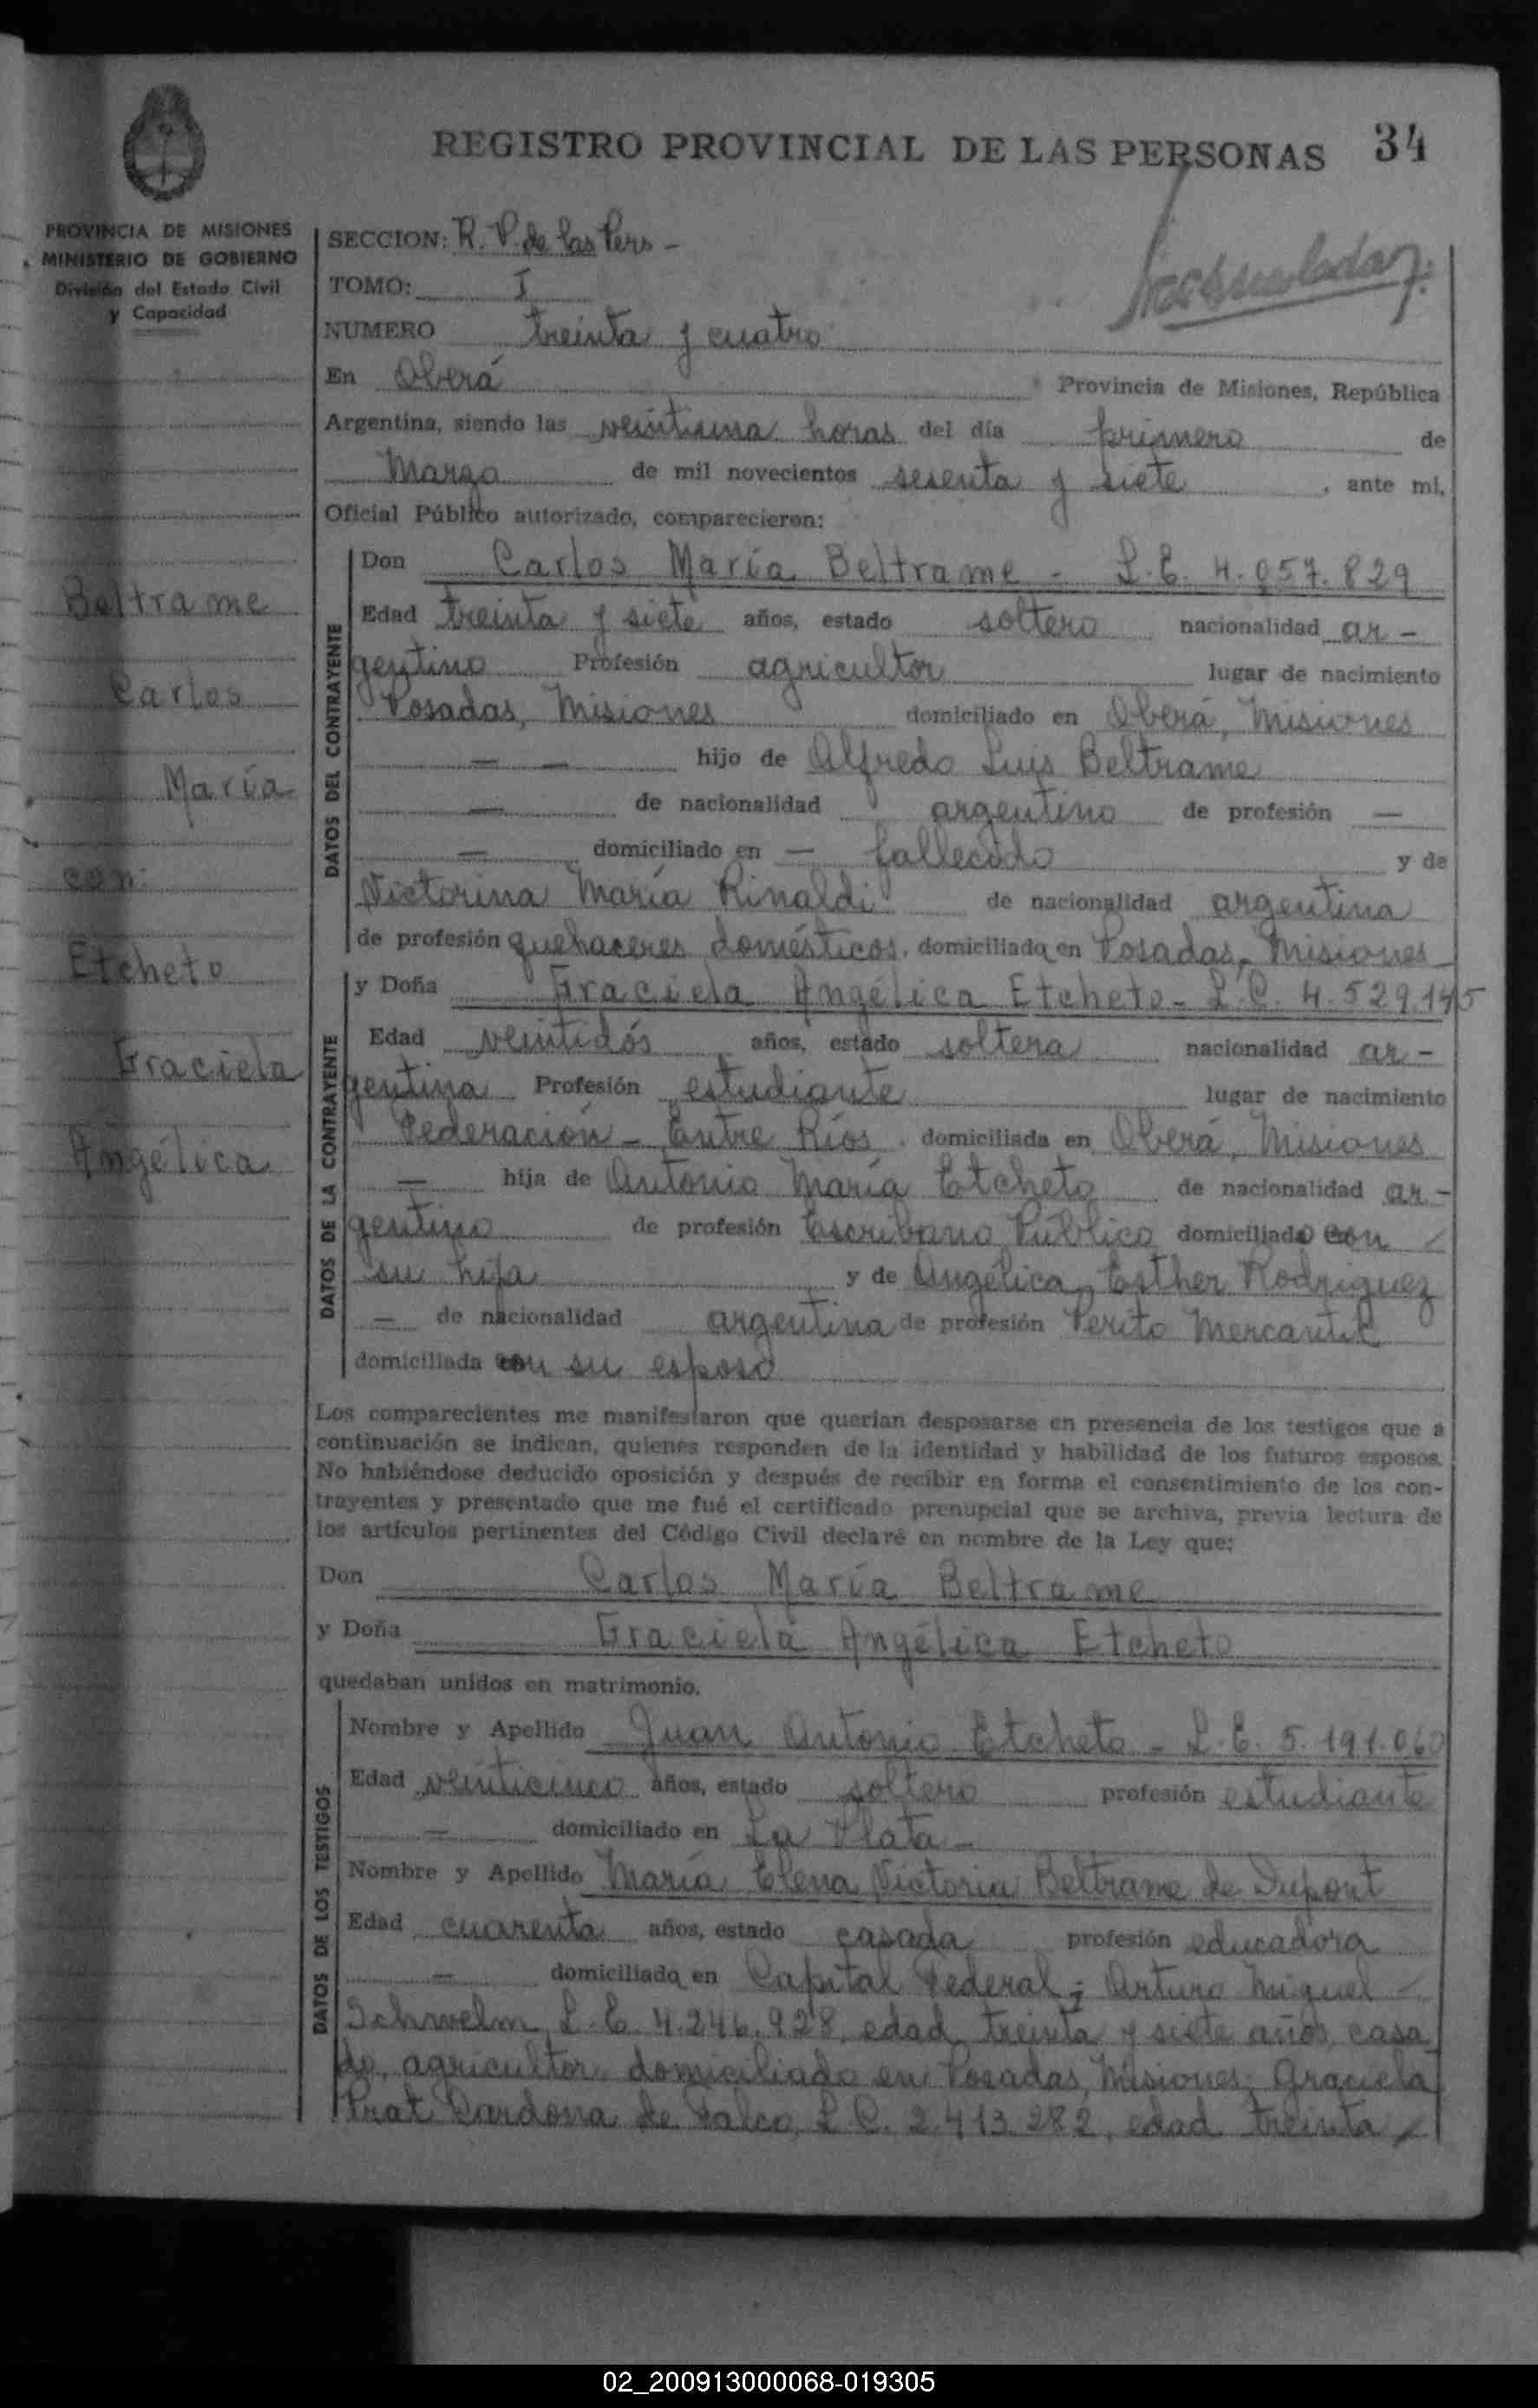 REGISTRO PROVINCIAL DE LAS PERSONAS 34
PROVINCIA DE MISIONES
MINISTERIO DE GOBIERNO
División del Estado Civil
y Capacidad
SECCION: R. P. de las Pers -
TOMO: I
NUMERO treinta y cuatro
En Oberá Provincia de Misiones, República
Argentina, siendo las veintiuna horas del día primero de
Marzo de mil novecientos sesenta y siete, ante mi,
Oficial Público autorizado, comparecieron:
Beltrame
Carlos
María
con:
Etcheto
Graciela
Angélica
DATOS DEL CONTRAYENTE
Don Carlos María Beltrame - L.E. 4.057.829
Edad treinta y siete años, estado soltero nacionalidad ar-
gentino Profesión agricultor lugar de nacimiento
Posadas, Misiones domiciliado en Oberá, Misiones
— — hijo de Alfredo Luis Beltrame
— de nacionalidad argentino de profesión —
— domiciliado en — fallecido y de
Victorina María Rinaldi de nacionalidad argentina
de profesión quehaceres domésticos, domiciliada en Posadas, Misiones
DATOS DE LA CONTRAYENTE
y Doña Graciela Angélica Etcheto - L.C. 4.529.145
Edad veintidós años, estado soltera nacionalidad ar-
gentina Profesión estudiante lugar de nacimiento
Federación - Entre Ríos, domiciliada en Oberá, Misiones
— hija de Antonio María Etcheto de nacionalidad ar-
gentino de profesión Escribano Público domiciliado con
su hija y de Angélica Esther Rodriguez
— de nacionalidad argentina de profesión Perito Mercantil
domiciliada con su esposo
Los comparecientes me manifestaron que querían desposarse en presencia de los testigos que a
continuación se indican, quienes responden de la identidad y habilidad de los futuros esposos.
No habiéndose deducido oposición y después de recibir en forma el consentimiento de los con-
trayentes y presentado que me fué el certificado prenupcial que se archiva, previa lectura de
los artículos pertinentes del Código Civil declaré en nombre de la Ley que:
Don Carlos María Beltrame
y Doña Graciela Angélica Etcheto
quedaban unidos en matrimonio.
DATOS DE LOS TESTIGOS
Nombre y Apellido Juan Antonio Etcheto - L.E. 5.191.060
Edad veinticinco años, estado soltero profesión estudiante
— domiciliado en La Plata -
Nombre y Apellido María Elena Victoria Beltrame de Dupont
Edad cuarenta años, estado casada profesión educadora
— domiciliada en Capital Federal; Arturo Miguel
Schwelm, L.E. 4.246.928, edad treinta y siete años, casa
do, agricultor, domiciliado en Posadas, Misiones; Graciela
Prat Cardona de Falco, L.C. 2.413.282, edad treinta
02_200913000068-019305